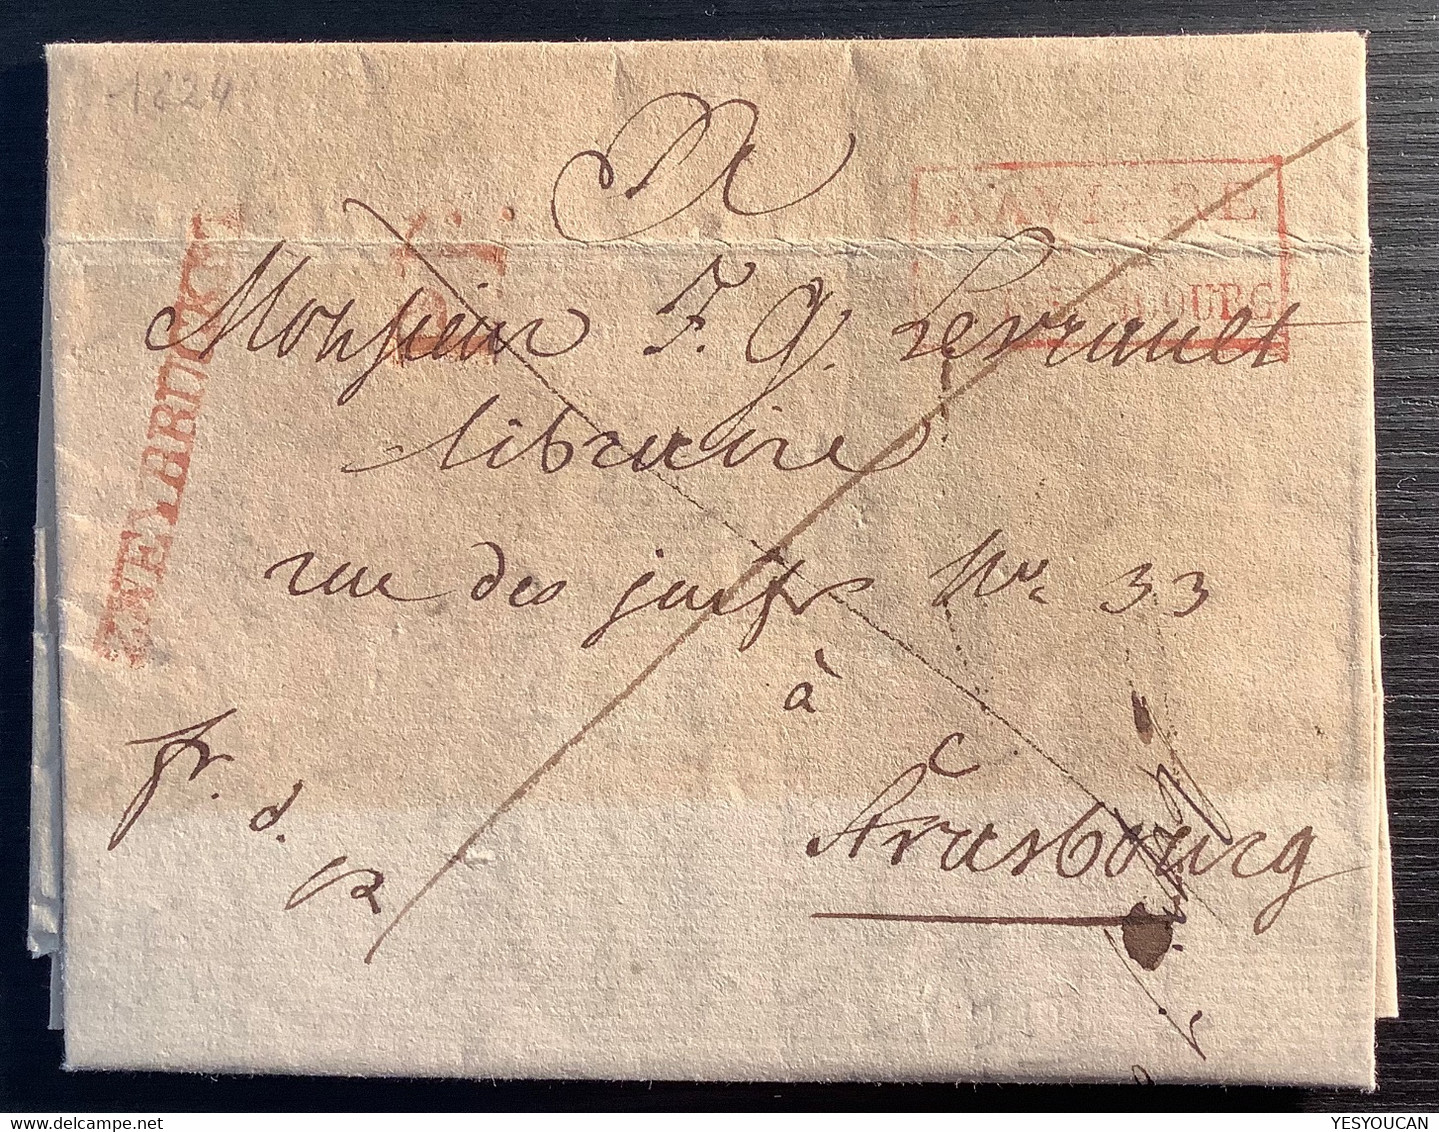 1824
A
BAVIERE
STRASBOURG
P.P.
ZWEYBRÜCKEN
Monsieur F. G. Levrault
libraire
rue des juifs Nro 33
à
Strasbourg
fr. d.
YESYOUCAN